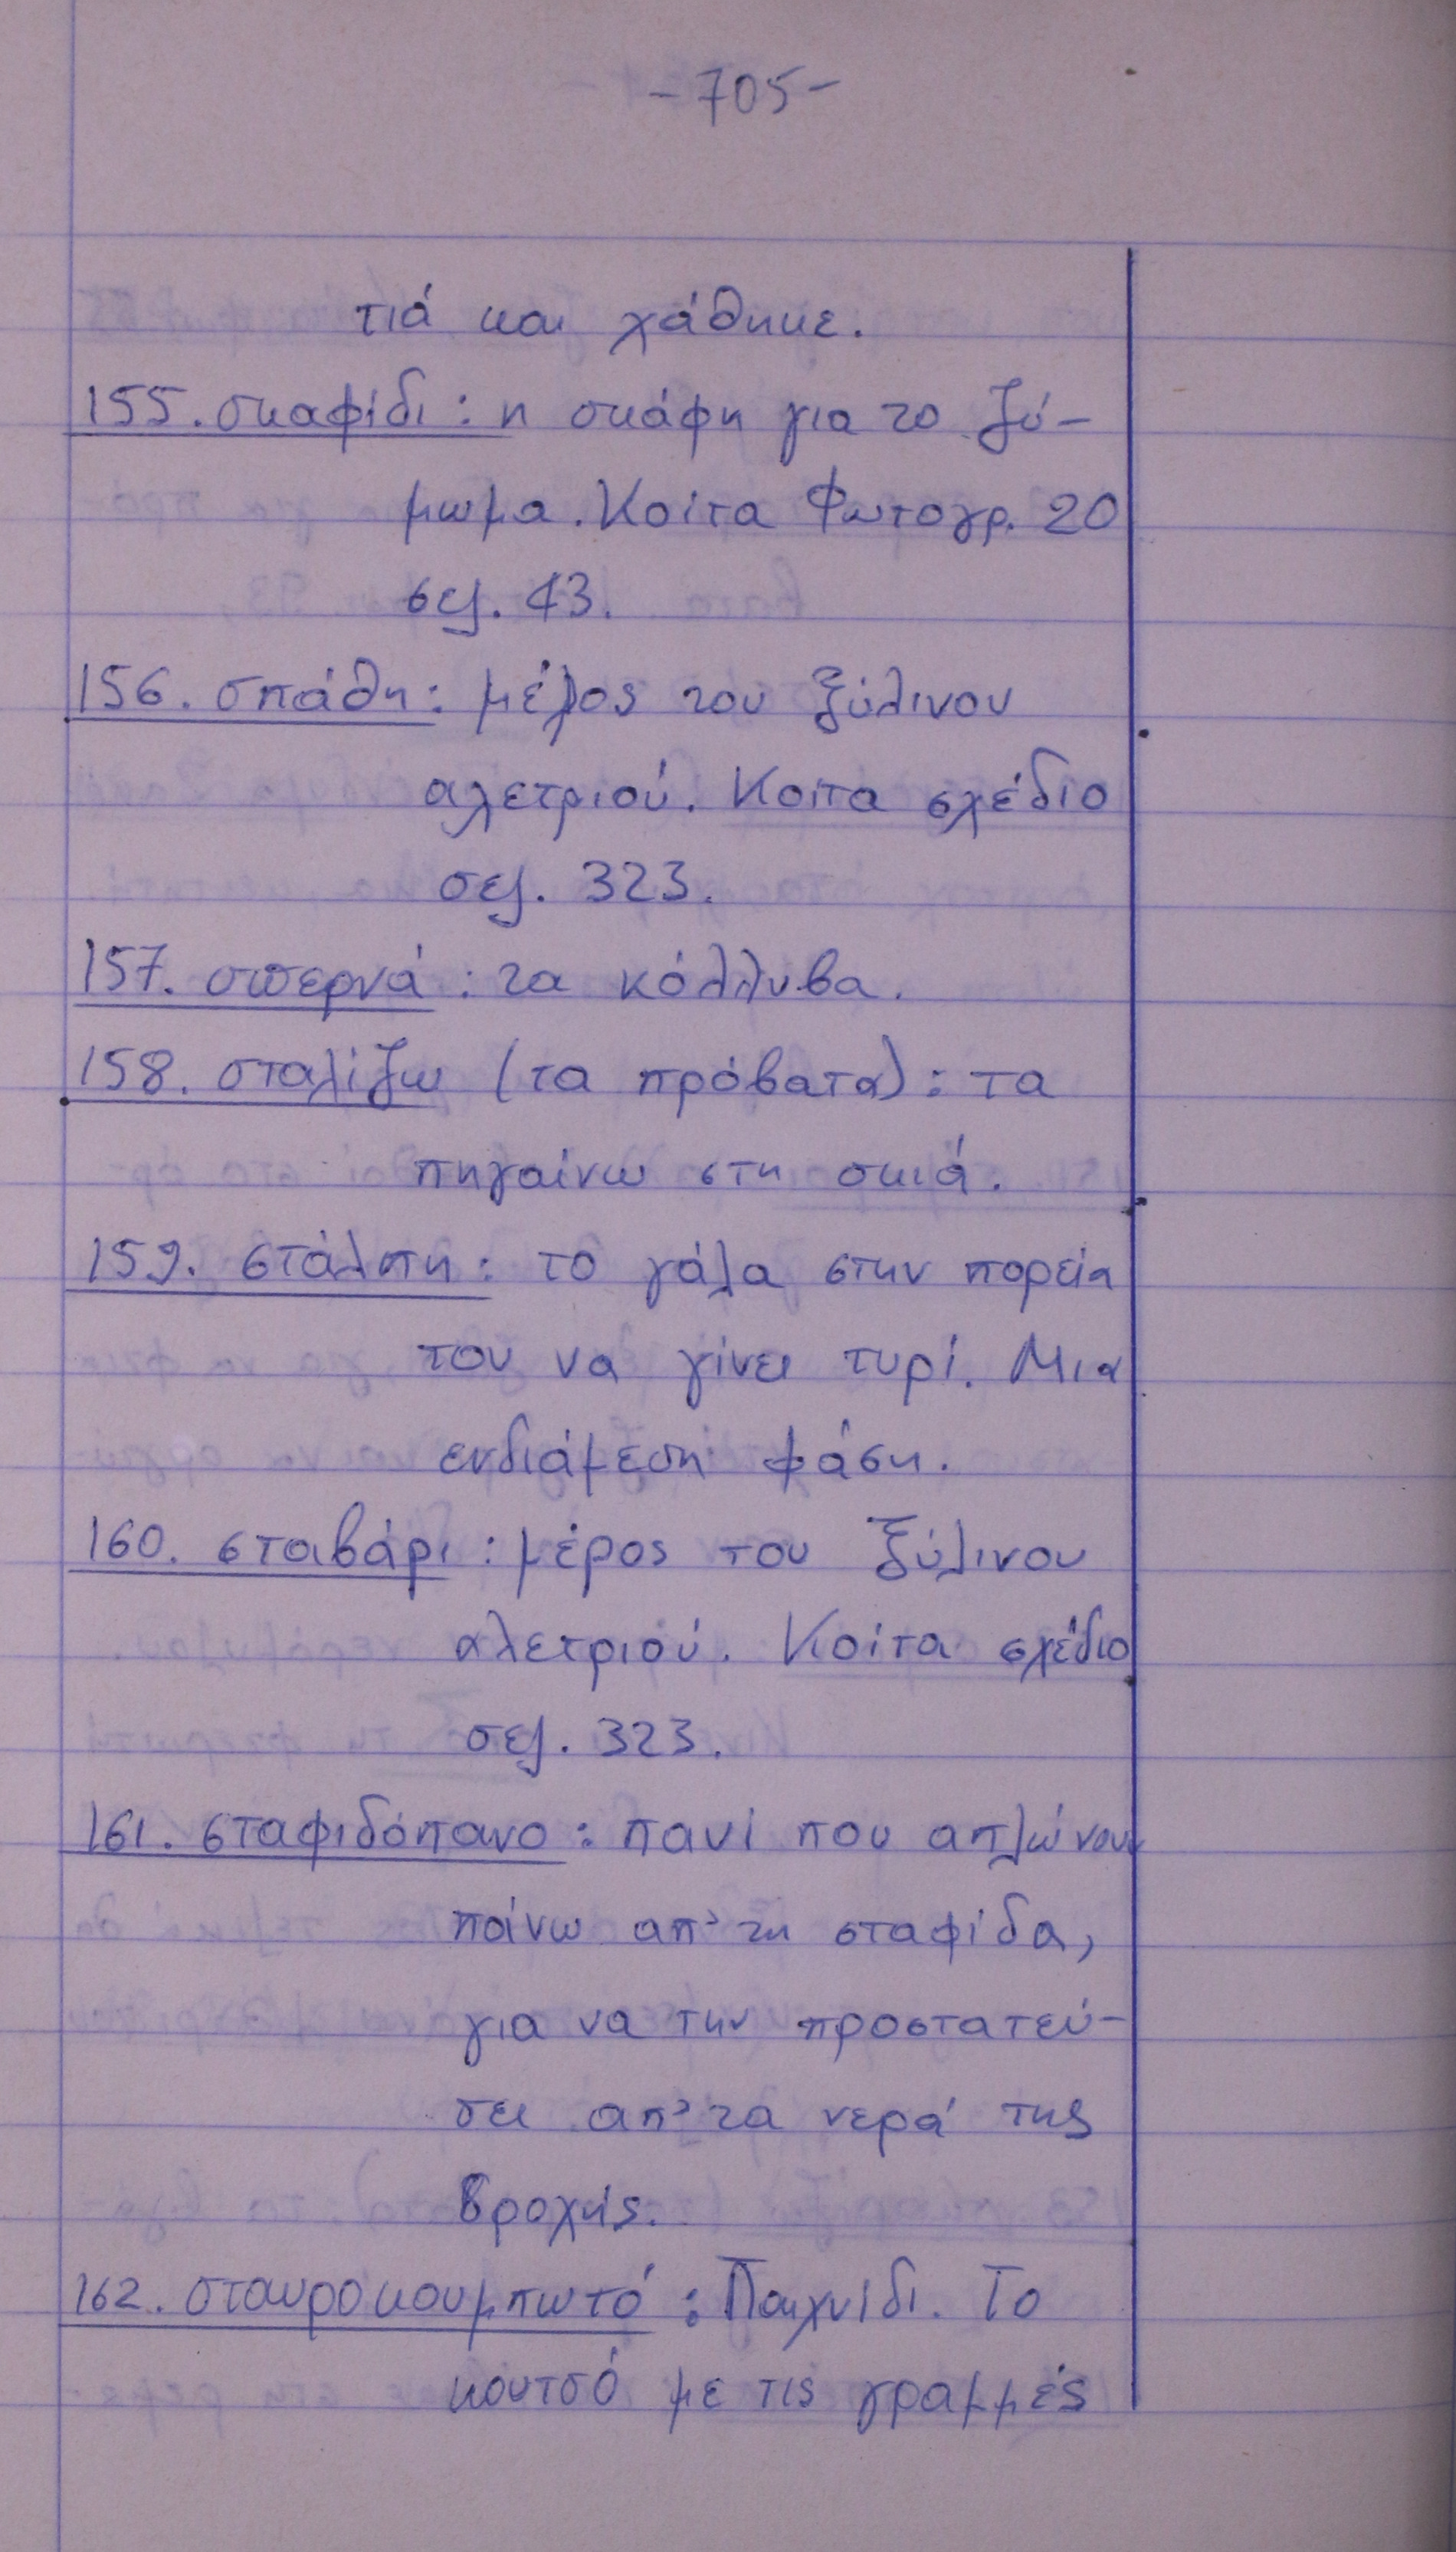 -705-
τιά και χάθηκε.
155. σκαφίδι: η σκάφη για το ζύ-
μωμα. Κοίτα Φωτογρ. 20
σελ. 43.
156. σπάθη: μέρος του ξύλινου
αλετριού. Κοίτα σχέδιο
σελ. 323.
157. σπερνά: τα κόλλυβα.
158. σταλίζω (τα πρόβατα): τα
πηγαίνω στη σκιά.
159. στάλπη: το γάλα στην πορεία
του να γίνει τυρί. Μια
ενδιάμεση φάση.
160. σταβάρι: μέρος του ξύλινου
αλετριού. Κοίτα σχέδιο
σελ. 323.
161. σταφιδόπανο: πανί που απλώνουν
πάνω απ' τη σταφίδα,
για να την προστατεύ-
σει απ' τα νερά της
βροχής.
162. σταυροκουμπωτό: Παιχνίδι. Το
κουτσό με τις γραμμές